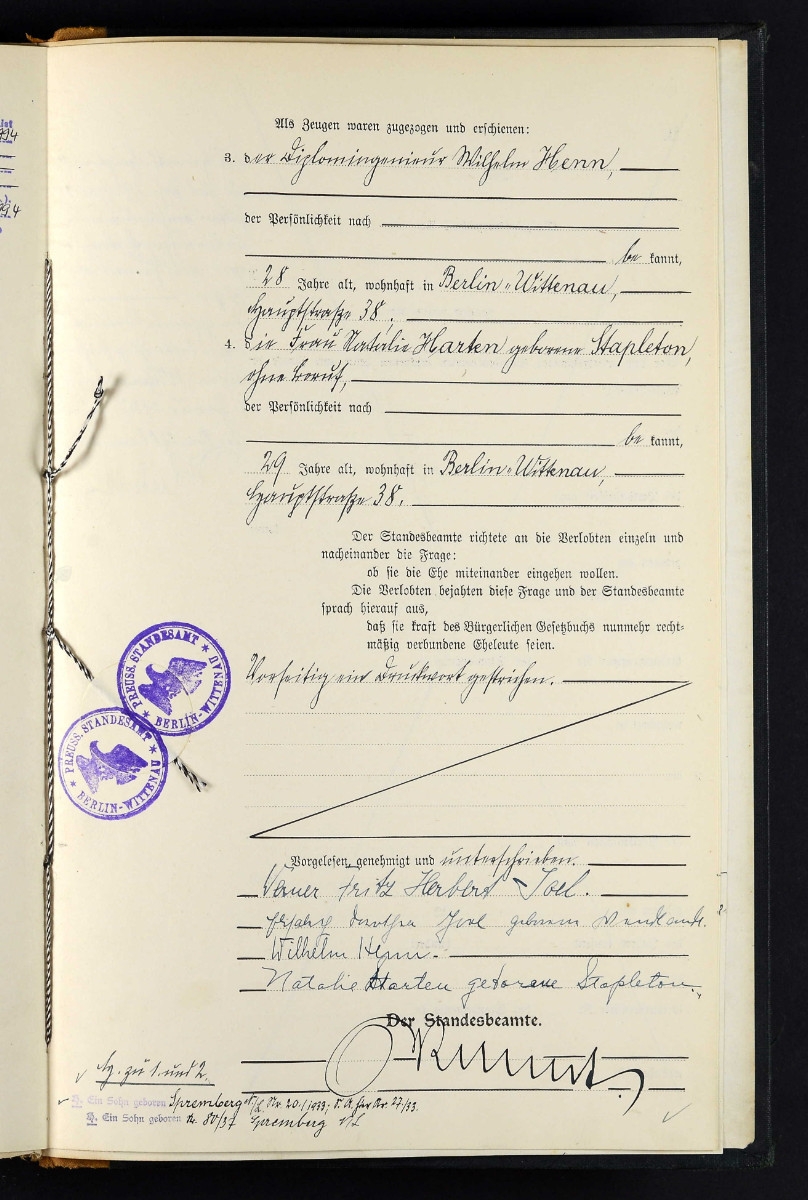 Als Zeugen waren zugezogen und erschienen:
3. der Diplomingenieur Wilhelm Henn,
der Persönlichkeit nach
be kannt,
28 Jahre alt, wohnhaft in Berlin-Wittenau,
Hauptstraße 38.
4. die Frau Natalie Harten geborene Stapleton,
ohne Beruf,
der Persönlichkeit nach
be kannt,
29 Jahre alt, wohnhaft in Berlin-Wittenau,
Hauptstraße 38.
Der Standesbeamte richtete an die Verlobten einzeln und
nacheinander die Frage:
ob sie die Ehe miteinander eingehen wollen.
Die Verlobten bejahten diese Frage und der Standesbeamte
sprach hierauf aus,
daß sie kraft des Bürgerlichen Gesetzbuchs nunmehr recht-
mäßig verbundene Eheleute seien.
Vorseitig ein Druckwort gestrichen.
PREUSS. STANDESAMT * BERLIN-WITTENAU *
PREUSS. STANDESAMT * BERLIN-WITTENAU *
Vorgelesen, genehmigt und unterschrieben.
Werner Fritz Herbert Joel.
Dorothea Joel geborene Wendlandt.
Wilhelm Henn.
Natalie Harten geborene Stapleton.
Der Standesbeamte.
zu 1. und 2.
Ein Sohn geboren Spremberg Nr. 20/1933; Nr. 27/33.
Ein Sohn geboren Nr. 80/37 Spremberg